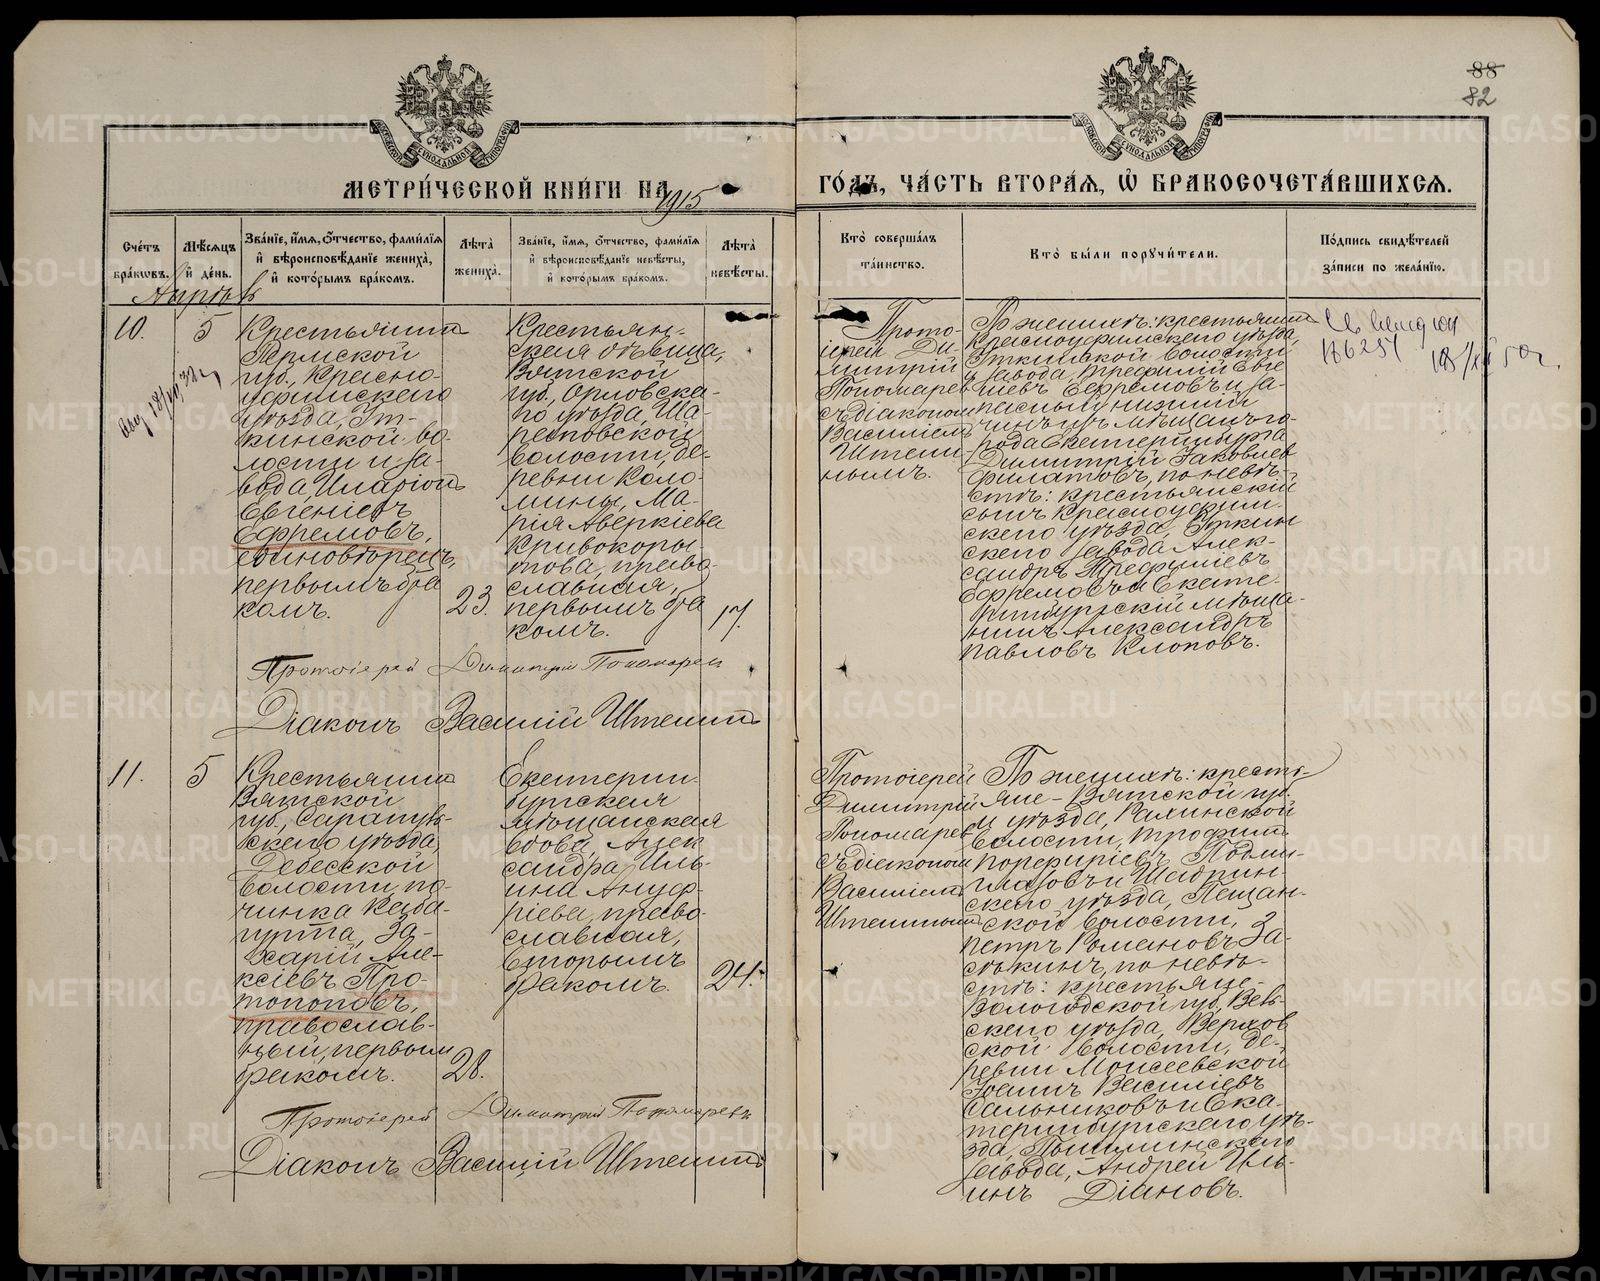 88
82
МОСКОВСКОЙ СѴНОДАЛЬНОЙ ТИПОГРАФІИ
МОСКОВСКОЙ СѴНОДАЛЬНОЙ ТИПОГРАФІИ
МЕТРИ́ЧЕСКОЙ КНИ́ГИ НА 1915
ГО́ДЪ, ЧА́СТЬ ВТОРА́Я, Ѽ БРАКОСОЧЕТА́ВШИХСЯ.
Сче́тъ бра́ковъ.
Мѣ́сяцъ и̂ де́нь.
Зва́нїе, и́мя, о́тчество, фами́лїя
и̂ вѣроисповѣ́данїе жениха̀,
и̂ кото́рымъ бра́комъ.
Лѣ́та жениха̀.
Зва́нїе, и́мя, о́тчество, фами́лїя
и̂ вѣроисповѣ́данїе невѣ́сты,
и̂ кото́рымъ бра́комъ.
Лѣ́та невѣ́сты.
Кто̀ соверша́лъ та́инство.
Кто̀ бы́ли поручи́тели.
По́дпись свидѣ́телей за́писи по жела́нїю.
10.
5
Крестьянинъ
Пермской
губ., Красно-
уфимскаго
уѣзда, Ут-
кинской во-
лости и за-
вода, Иларіонъ
Евгеніевъ
Ефремовъ,
единовѣрецъ,
первымъ бра
комъ.
23.
Крестьян-
ская дѣвица,
Вятской
губ., Орловска-
го уѣзда, Ша-
раповской
волости, де-
ревни Коло-
мины, Ма-
рія Аверкіева
Кривокоры
това, право-
славная,
первымъ бра
комъ.
17.
Прото-
іерей Ди-
митрій
Пономаревъ
съ діакономъ
Василіемъ
Штени-
нымъ.
По женихѣ: крестьянинъ
Красноуфимскаго уѣзда,
Уткинской волости
и завода, Трефилій Евге
ніевъ Ефремовъ и за-
пасный низшій
чинъ изъ мѣщанъ го-
рода Екатеринбурга
Димитрій Іаковлев
Филатовъ, по невѣ-
стѣ: крестьянскій
сынъ Красноуфим-
скаго уѣзда, Уткин
скаго завода Алек-
сандръ Трефиліевъ
Ефремовъ и Екате-
ринбургскій мѣща-
нинъ Александръ
Павловъ Клоповъ.
Протоіерей Димитрій Пономаревъ
Діаконъ Василій Штенинъ
11.
5
Крестьянинъ
Вятской
губ., Сарапуль-
скаго уѣзда,
Дебесской
волости, по-
чинка Каба-
гурта, За-
харій Але-
ксіевъ Про-
топоповъ,
православ-
ный, первымъ
бракомъ.
28.
Екатерин-
бургская
мѣщанская
вдова, Алек
сандра Иль-
ина Ануф-
ріева, право-
славная,
вторымъ
бракомъ.
24.
Протоіерей
Димитрій
Пономаревъ
съ діакономъ
Василіемъ
Штенинымъ
По женихѣ: кресть-
яне - Вятской губ.
и уѣзда,
волости, Трофимъ
и Шадрин-
скаго уѣзда, Пещан-
ской волости,
Петръ Романовъ За-
сѣкинъ, по невѣ-
стѣ: крестьяне-
Вологодской губ., Вель-
скаго уѣзда, Верхов
ской волости, де-
ревни Моисеевской
Іоаннъ Василіевъ
Сальниковъ и Ека-
теринбургскаго уѣ-
зда, Пышминскаго
завода, Андрей Иль-
инъ Діановъ.
Протоіерей Димитрій Пономаревъ
Діаконъ Василій Штенинъ